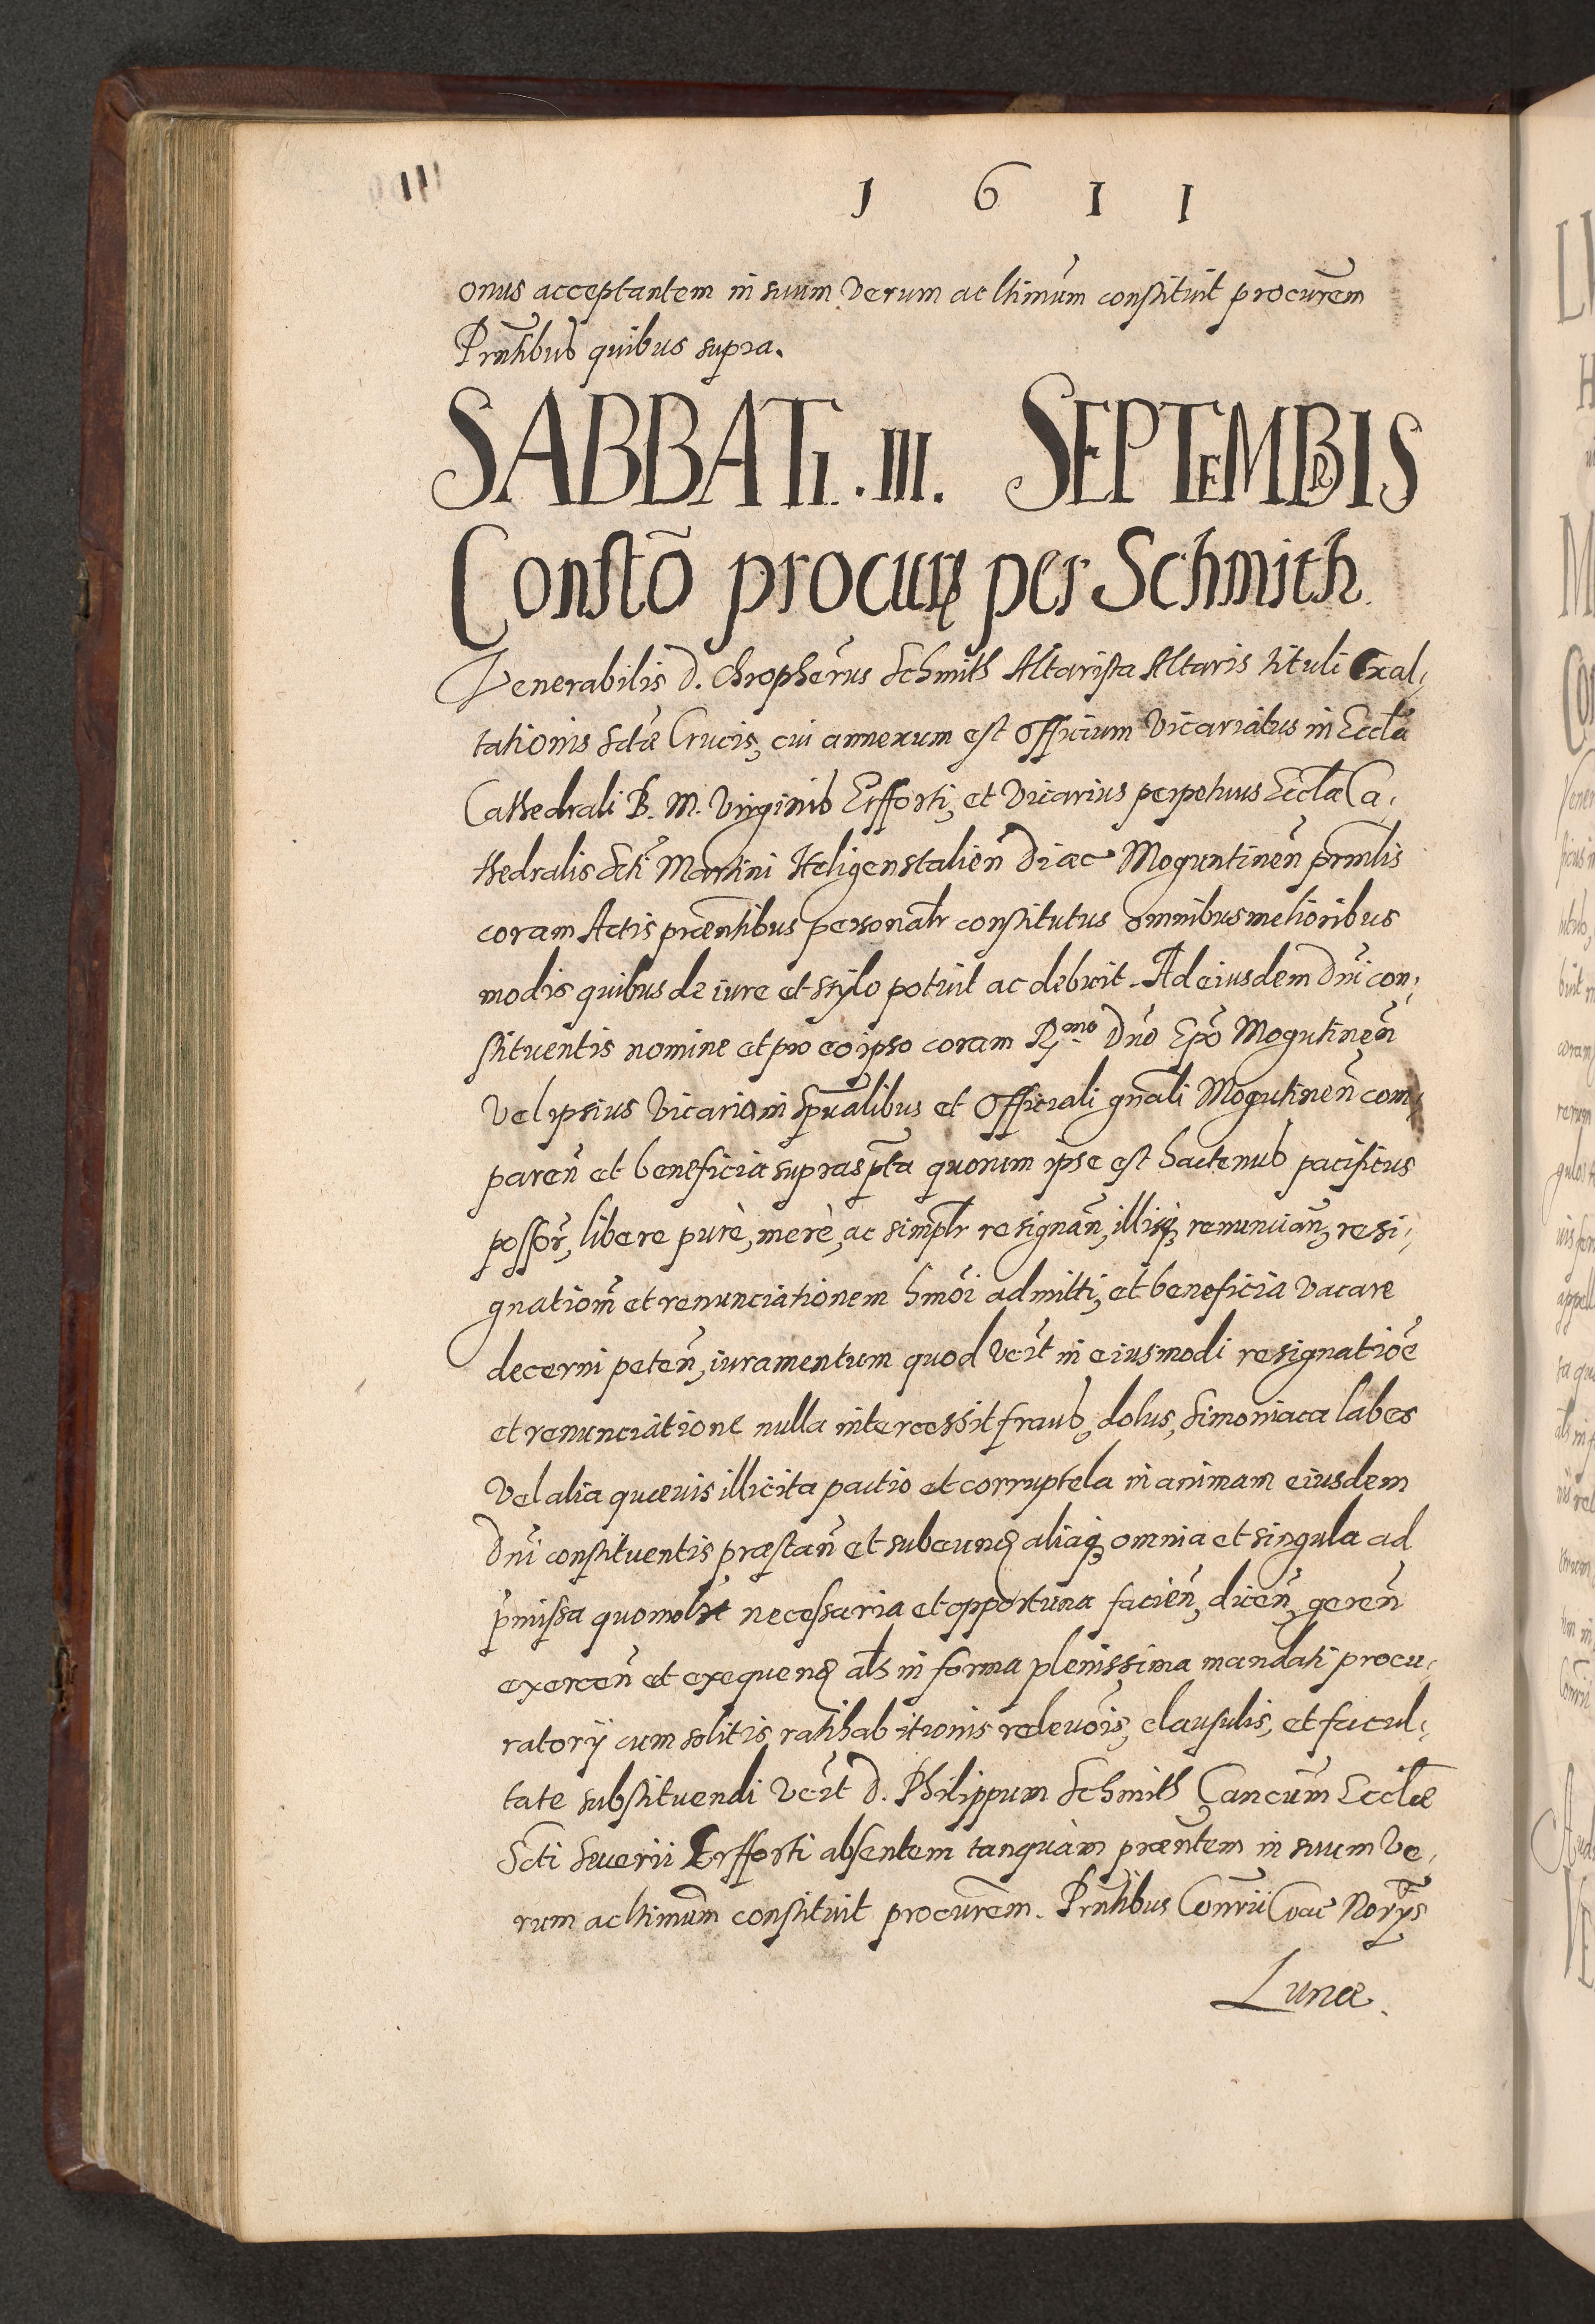 1 6 1 1
onus acceptantem in suum verum ac ltimum̃ constituit procurem̃
Prñtibus quibus supra.
SABBATI .III. SEPTEMBRIS
Constõ procurꝭ per Schmith.
Venerabilis D. Chropherus̃ Schmith Altarista Altaris tituli Exal,
tationis Sctæ̃ Crucis, cui annexum est Officium Vicariatus in Eccla̅
Cathedrali B. M. Virginis Erfforti, et Vicarius perpetuus Ecclæ̅ Ca,
thedralis Scti̅ Martini Heligenstalien̅ Diæc Moguntinen̅ prmlis̅
coram Actis præntibus̅ personalr̅ constitutus omnibus melioribus
modis quibus de iure et stylo potuit ac debuit. Ad eiusdem Dni̅ con,
stituentis nomine et pro eo ipso coram R.mo Dno̅ Epo̅ Mogutinen̅
vel ipsius Vicario in Spualibus̅ et Officiali gnali̅ Mogutinen̅ com,
paren̅ et beneficia supraspta̅ quorum ipse est hactenus pacificus
possor̅, libere purè, merè, ac simplr̅ resignan̅, illisqꝫ renuncian̅, resi,
gnationm̅ et renunciationem hmoi̅ admitti, et beneficia vacare
decerni peten̅, iuramentum quod vert̅ in eiusmodi resignatioe̅
et renunciatione nulla intercessit fraus, dolus, Simoniaca labes
vel alia quævis illicita pactio et corruptela in animam eiusdem
Dni̅ constituentis præstan̅ et subeund̅ aliaqꝫ omnia et singula ad
p̅missa quomolt̅ necessaria et opportuna facien̅, dicen̅, geren̅
exercen̅ et exequend̅ als̅ in forma plenissima mandati procu,
ratorij cum solitis ratihabitionis relevois̅, clausulis, et facul,
tate substituendi vert̅ D. Philippum Schmith Cancum̅ Ecclæ̅
Scti̅ Severii Erfforti absentem tanquam præntem̅ in suum ve,
rum ac ltimum̅ constituit procurem̅. Prñtibus Conrii̅ Cvac Norys̅
Lunæ.